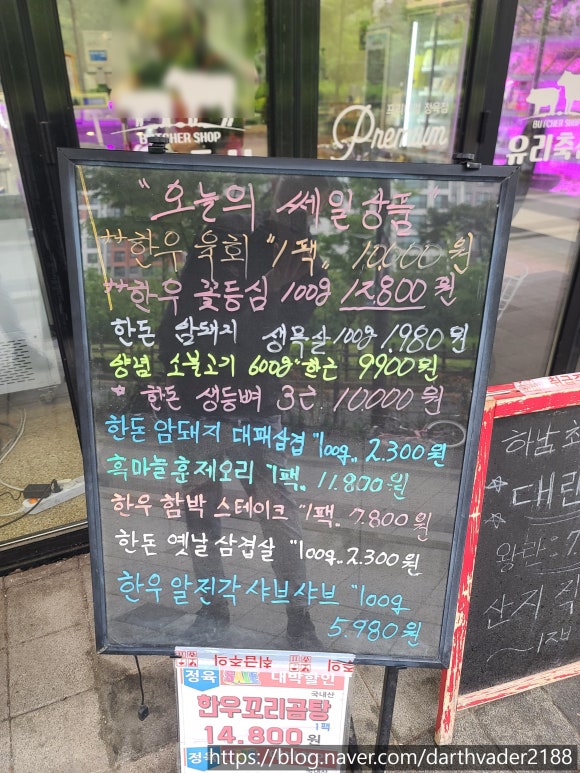 BUTCHER SHOP
프리미엄 정육점
Premium
BUTCHER SHOP
유리축산
"오늘의 쎄일상품"
**한우 육회 "1팩" 10,000원
**한우 꽃등심 100g 12,800원
한돈 암돼지 생목살 100g 1,980원
양념 소불고기 600g"한근 9900원
* 한돈 생등뼈 3근. 10.000원
한돈 암돼지 대패삼겹 "100g.. 2.300원
흑마늘훈제오리 "1팩. 11.800원
한우 함박 스테이크 "1팩. 7.800원
한돈 옛날 삼겹살 "100g..2.300원
한우 알전각 샤브샤브 "100g
5.980원
취급주의
정육 SALE 대박할인
국내산
한우꼬리곰탕
1팩
14.800원
정육
하남
대란
왕란
산지 직
https://blog.naver.com/darthvader2188